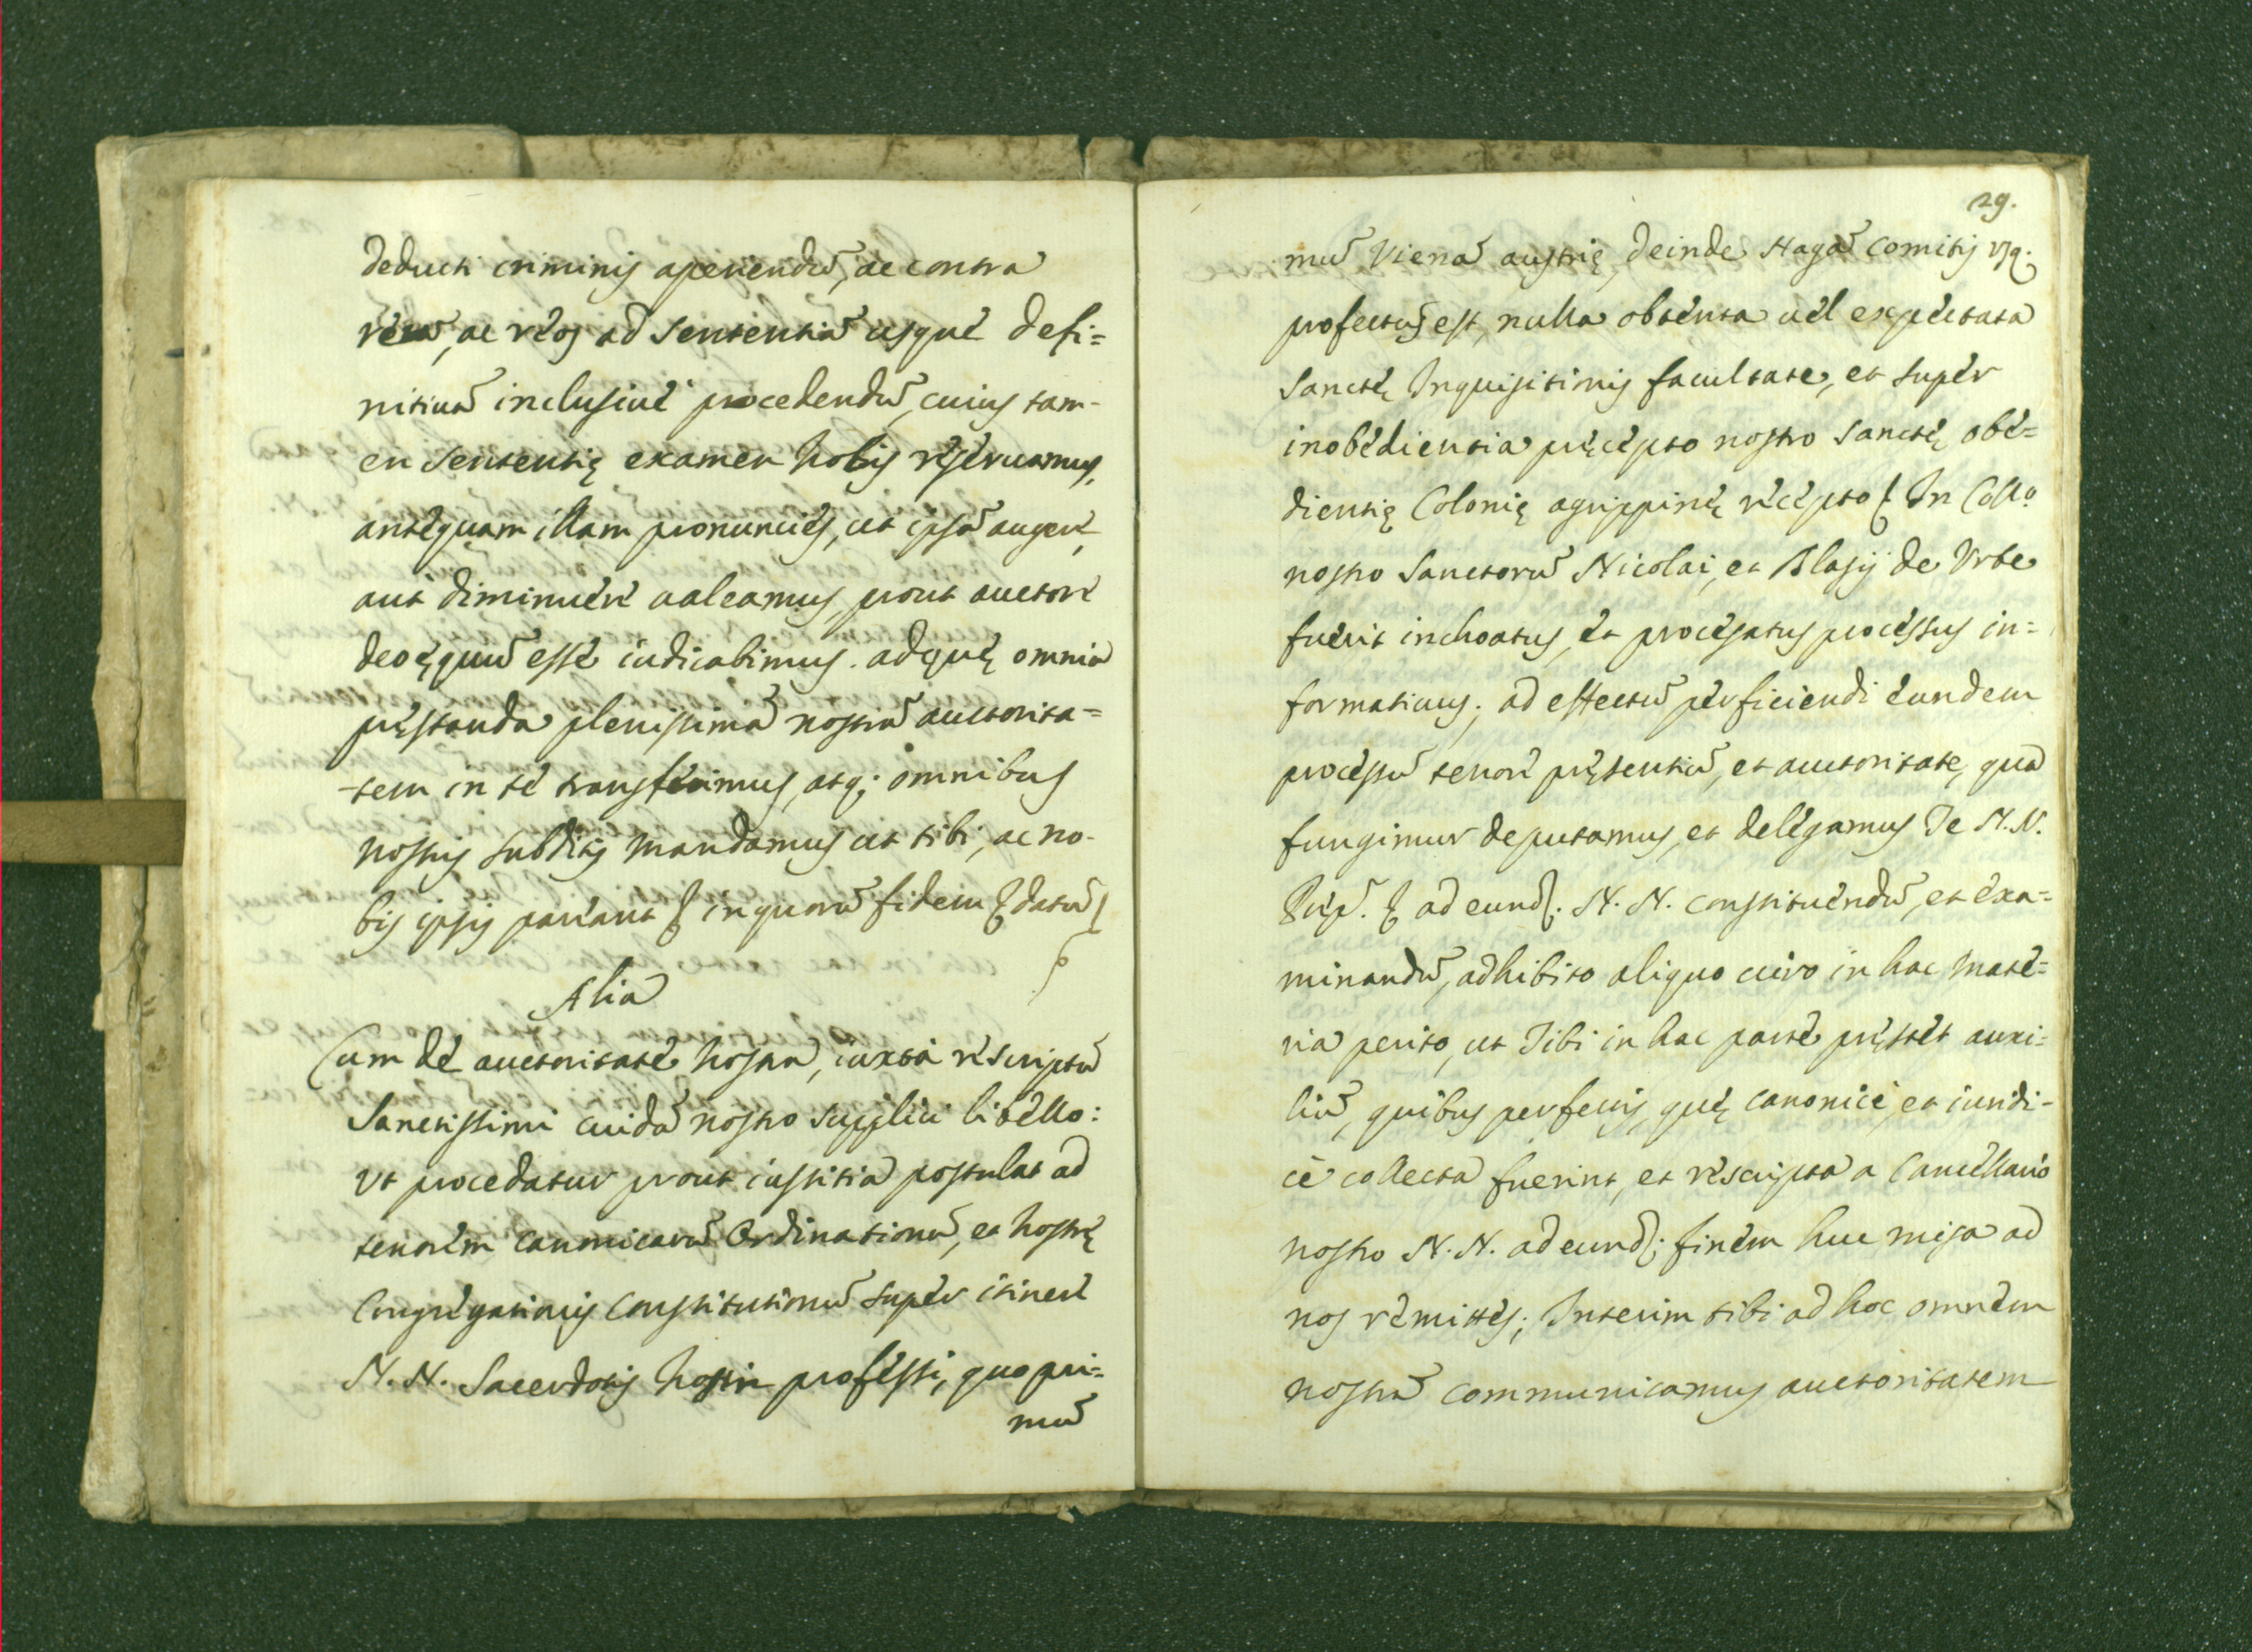 deducti criminis aperiendū, ac contra
reū, ac reos ad sententiā usque defi=
nitiuā inclusiue procedendū, cuius tam-
en sententię examen nobis reseruamus,
antequam illam pronuncies, ut ipsā augere,
aut diminuere ualeamus, prout auctore
deo ęquū esse iudicabimus. adquę omnia
pręstanda plenissimā nostrā auctorita=
tem in te transferimus, atq; omnibus
nostris subditis mandamus ut tibi, ac no-
bis ipsis pareant & in quorū fidem & datū &
Alia
Cum de auctoritate nostra, iuxta rescriptū
Sanctissimi cuidā nostro supplici libello:
Vt procedatur prout iustitia postulat ad
tenorem canonicarū Ordinationū, et nostrę
Congregationis Constitutionū super itinere
N. N. Sacerdotis nostri professi, quo pri=
mū
29.
mū Vienā austrię, deinde Hagā Comitis vsq.
profectus est, nulla obtenta uel expectata
Sanctę Inquisitionis facultate, et super
inobedientia pręcepto nostro sanctę obe=
dientię Colonię agrippinę recepto & In Coll.o
nostro Sanctorū Nicolai, et Blasij de Vrbe
fuerit inchoatus, et processatus processus in=
formatiuus; ad effectū perficiendi eundem
processū tenore pręsentiū, et auctoritate, qua
fungimur deputamus, et delegamus Te N. N.
Pręp. & ad eund. N. N. constituendū, et exa=
minandū, adhibito aliquo uiro in hac mate=
ria perito, ut Tibi in hac parte pręstet auxi=
liū, quibus perfectis, quę canonice, et iuridi-
cè collecta fuerint, et rescripta a Cancellario
nostro N. N. ad eund; finem huc misso ad
nos remittes; Interim tibi ad hoc omnem
nostrā communicamus auctoritatem